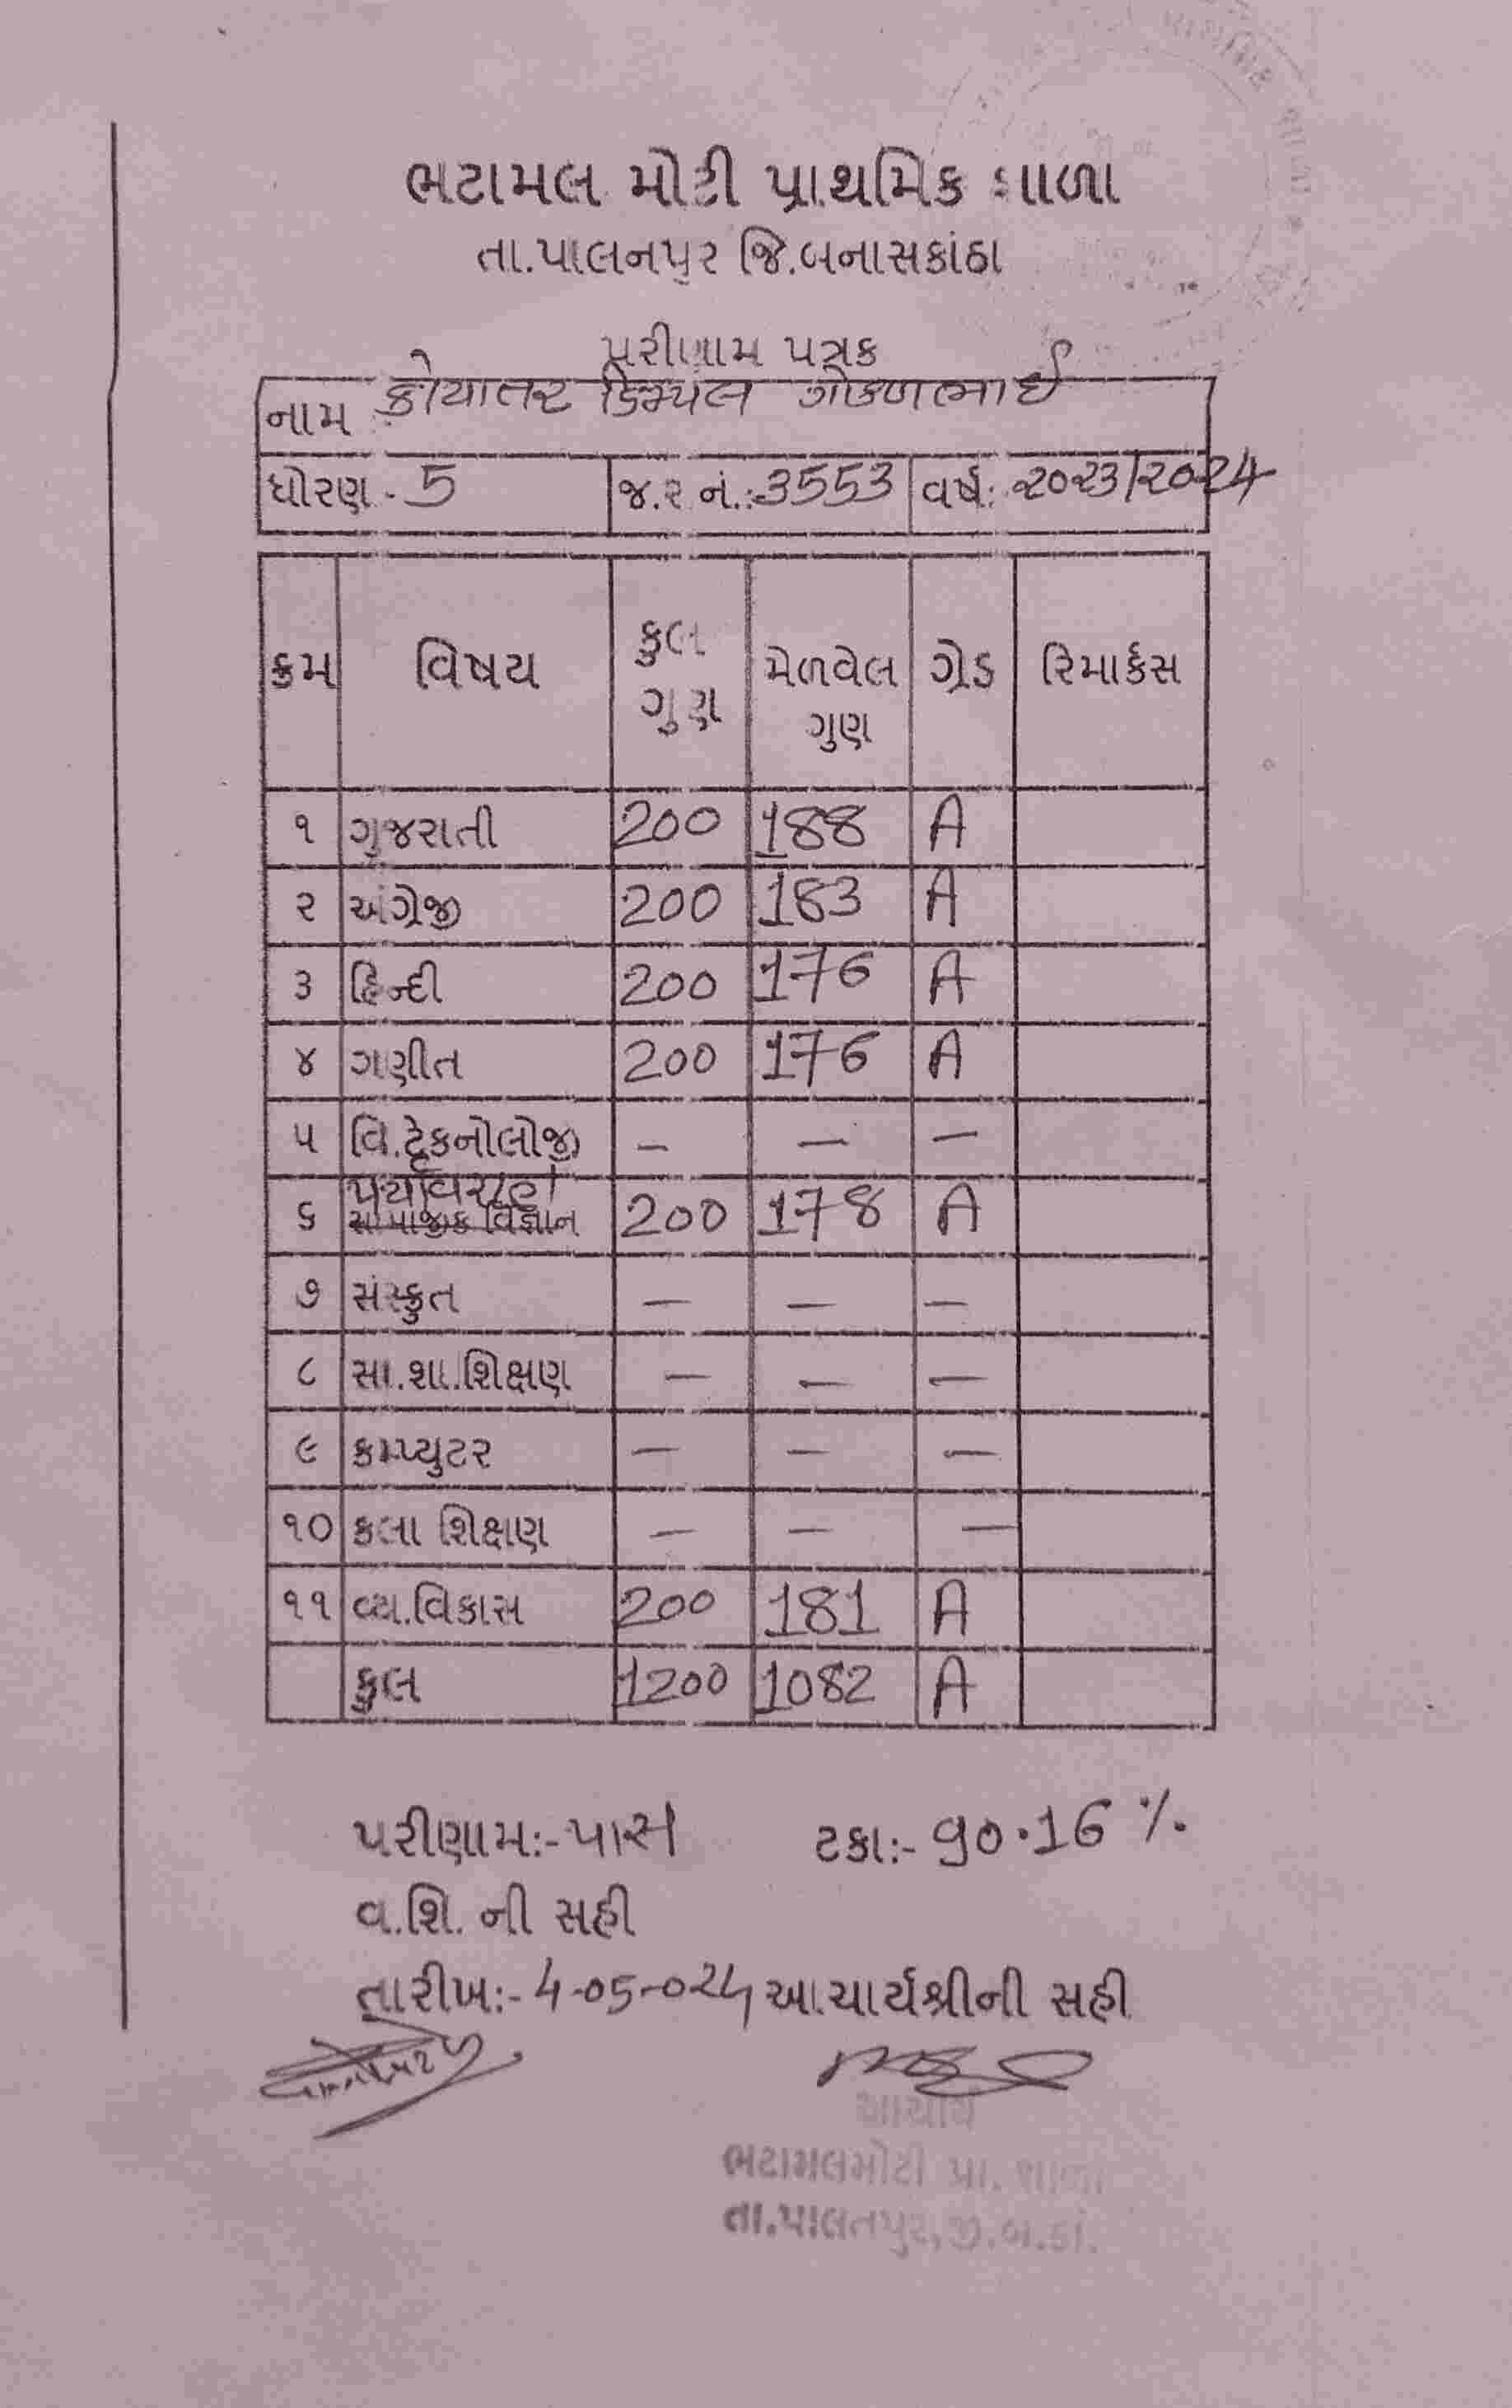 ભટામલ મોટી પ્રાથમિક શાળા
તા.પાલનપુર જિ.બનાસકાંઠા
પરીણામ પત્રક
નામ કોયાતર ડિમ્પલ ગોકળભાઈ
ધોરણ - 5 જ.ર.નં.:3553 વર્ષ: ૨૦૨3/૨૦૨4
ક્રમ વિષય કુલ ગુણ મેળવેલ ગુણ ગ્રેડ રિમાર્કસ
૧ ગુજરાતી 200 188 A
૨ અંગ્રેજી 200 183 A
૩ હિન્દી 200 176 A
૪ ગણીત 200 176 A
૫ વિ.ટેકનોલોજી – – –
પર્યાવરણ
૬ સામાજીક વિજ્ઞાન 200 178 A
૭ સંસ્કૃત – – –
૮ સા.શા.શિક્ષણ – – –
૯ કમ્પ્યુટર – – –
૧૦ કલા શિક્ષણ – – –
૧૧ વ્ય.વિકાસ 200 181 A
કુલ 1200 1082 A
પરીણામ:- પાસ ટકા:- 90.16 %
વ.શિ. ની સહી
તારીખ:- 4-05-૦૨4 આચાર્યશ્રીની સહી
આચાર્ય
ભટામલમોટી પ્રા. શાળા
તા.પાલનપુર,જી.બ.કાં.